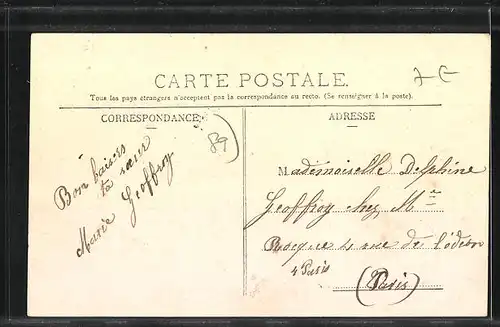 7 E
CARTE POSTALE.
Tous les pays étrangers n'acceptent pas la correspondance au recto. (Se renseigner à la poste).
CORRESPONDANCE
89
Bon baisers
ta sœur
Marie Geoffroy
ADRESSE
Mademoiselle Delphine
Geoffroy chez Mme
Rocque 4 rue de l'odéon
4 Paris
(Paris)